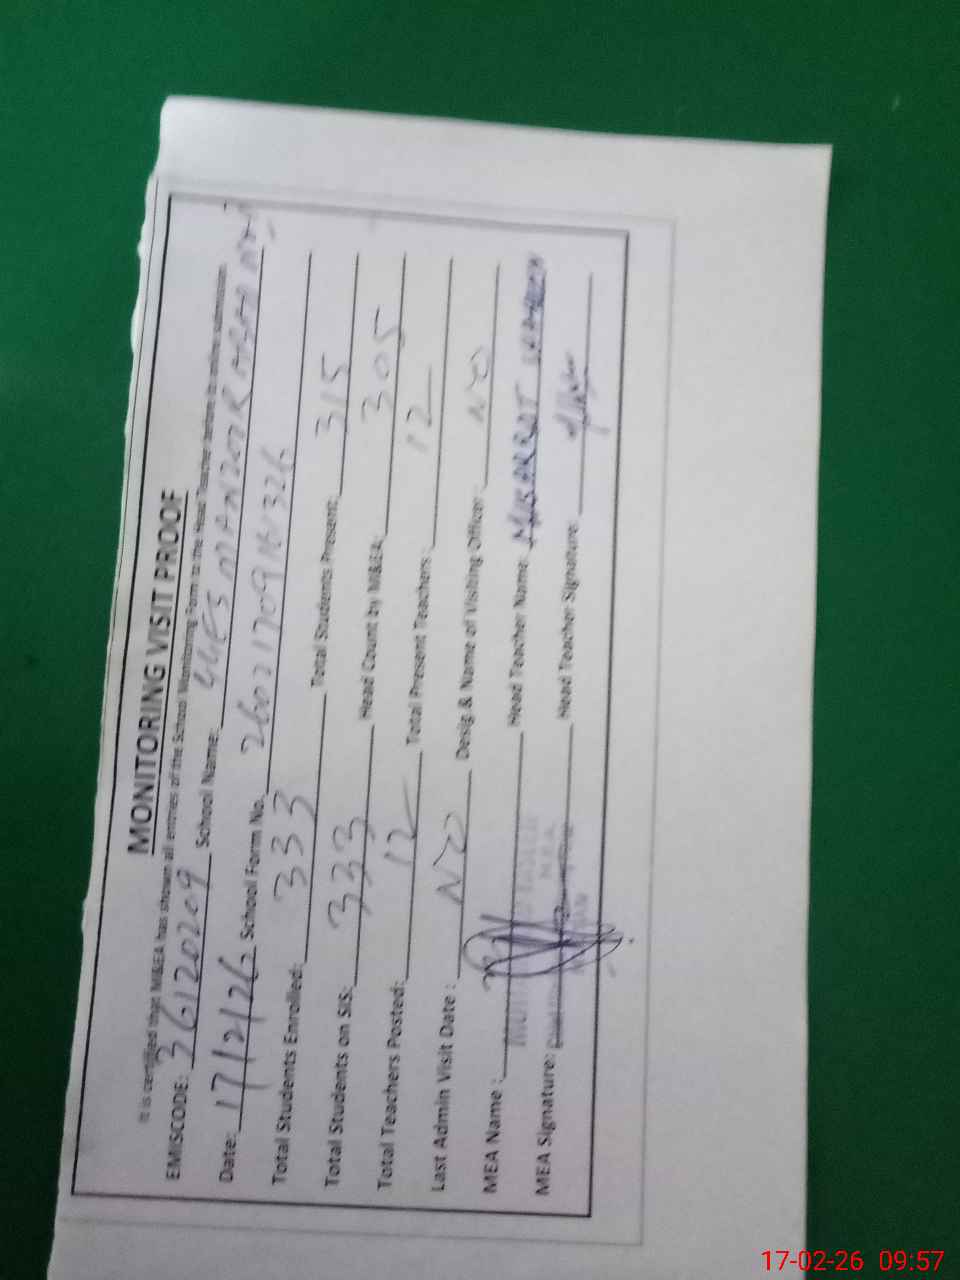 MONITORING VISIT PROOF
It is certified that M&EA has shown all entries of the School Monitoring Form to the Head Teacher before its online submission
EMISCODE: 36120209 School Name:
Date: 17/2/26 School Form No.
Total Students Enrolled: 333 Total Students Present: 315
Total Students on SIS: 333 Head Count by M&EA: 305
Total Teachers Posted: 12 Total Present Teachers: 12
Last Admin Visit Date : NO Desig & Name of Visiting Officer: NO
MEA Name : Head Teacher Name:
MEA Signature: Head Teacher Signature:
17-02-26 09:57